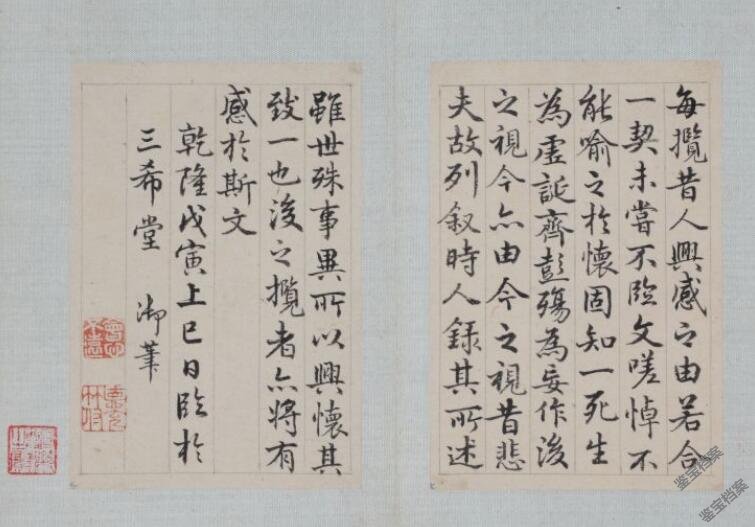 每攬昔人興感之由若合
一契未嘗不臨文嗟悼不
能喻之於懷固知一死生
為虛誕齊彭殤為妄作後
之視今亦由今之視昔悲
夫故列叙時人錄其所述
雖世殊事異所以興懷其
致一也後之攬者亦將有
感於斯文
乾隆戊寅上巳日臨於
三希堂 御筆
鉴宝档案
鉴宝档案